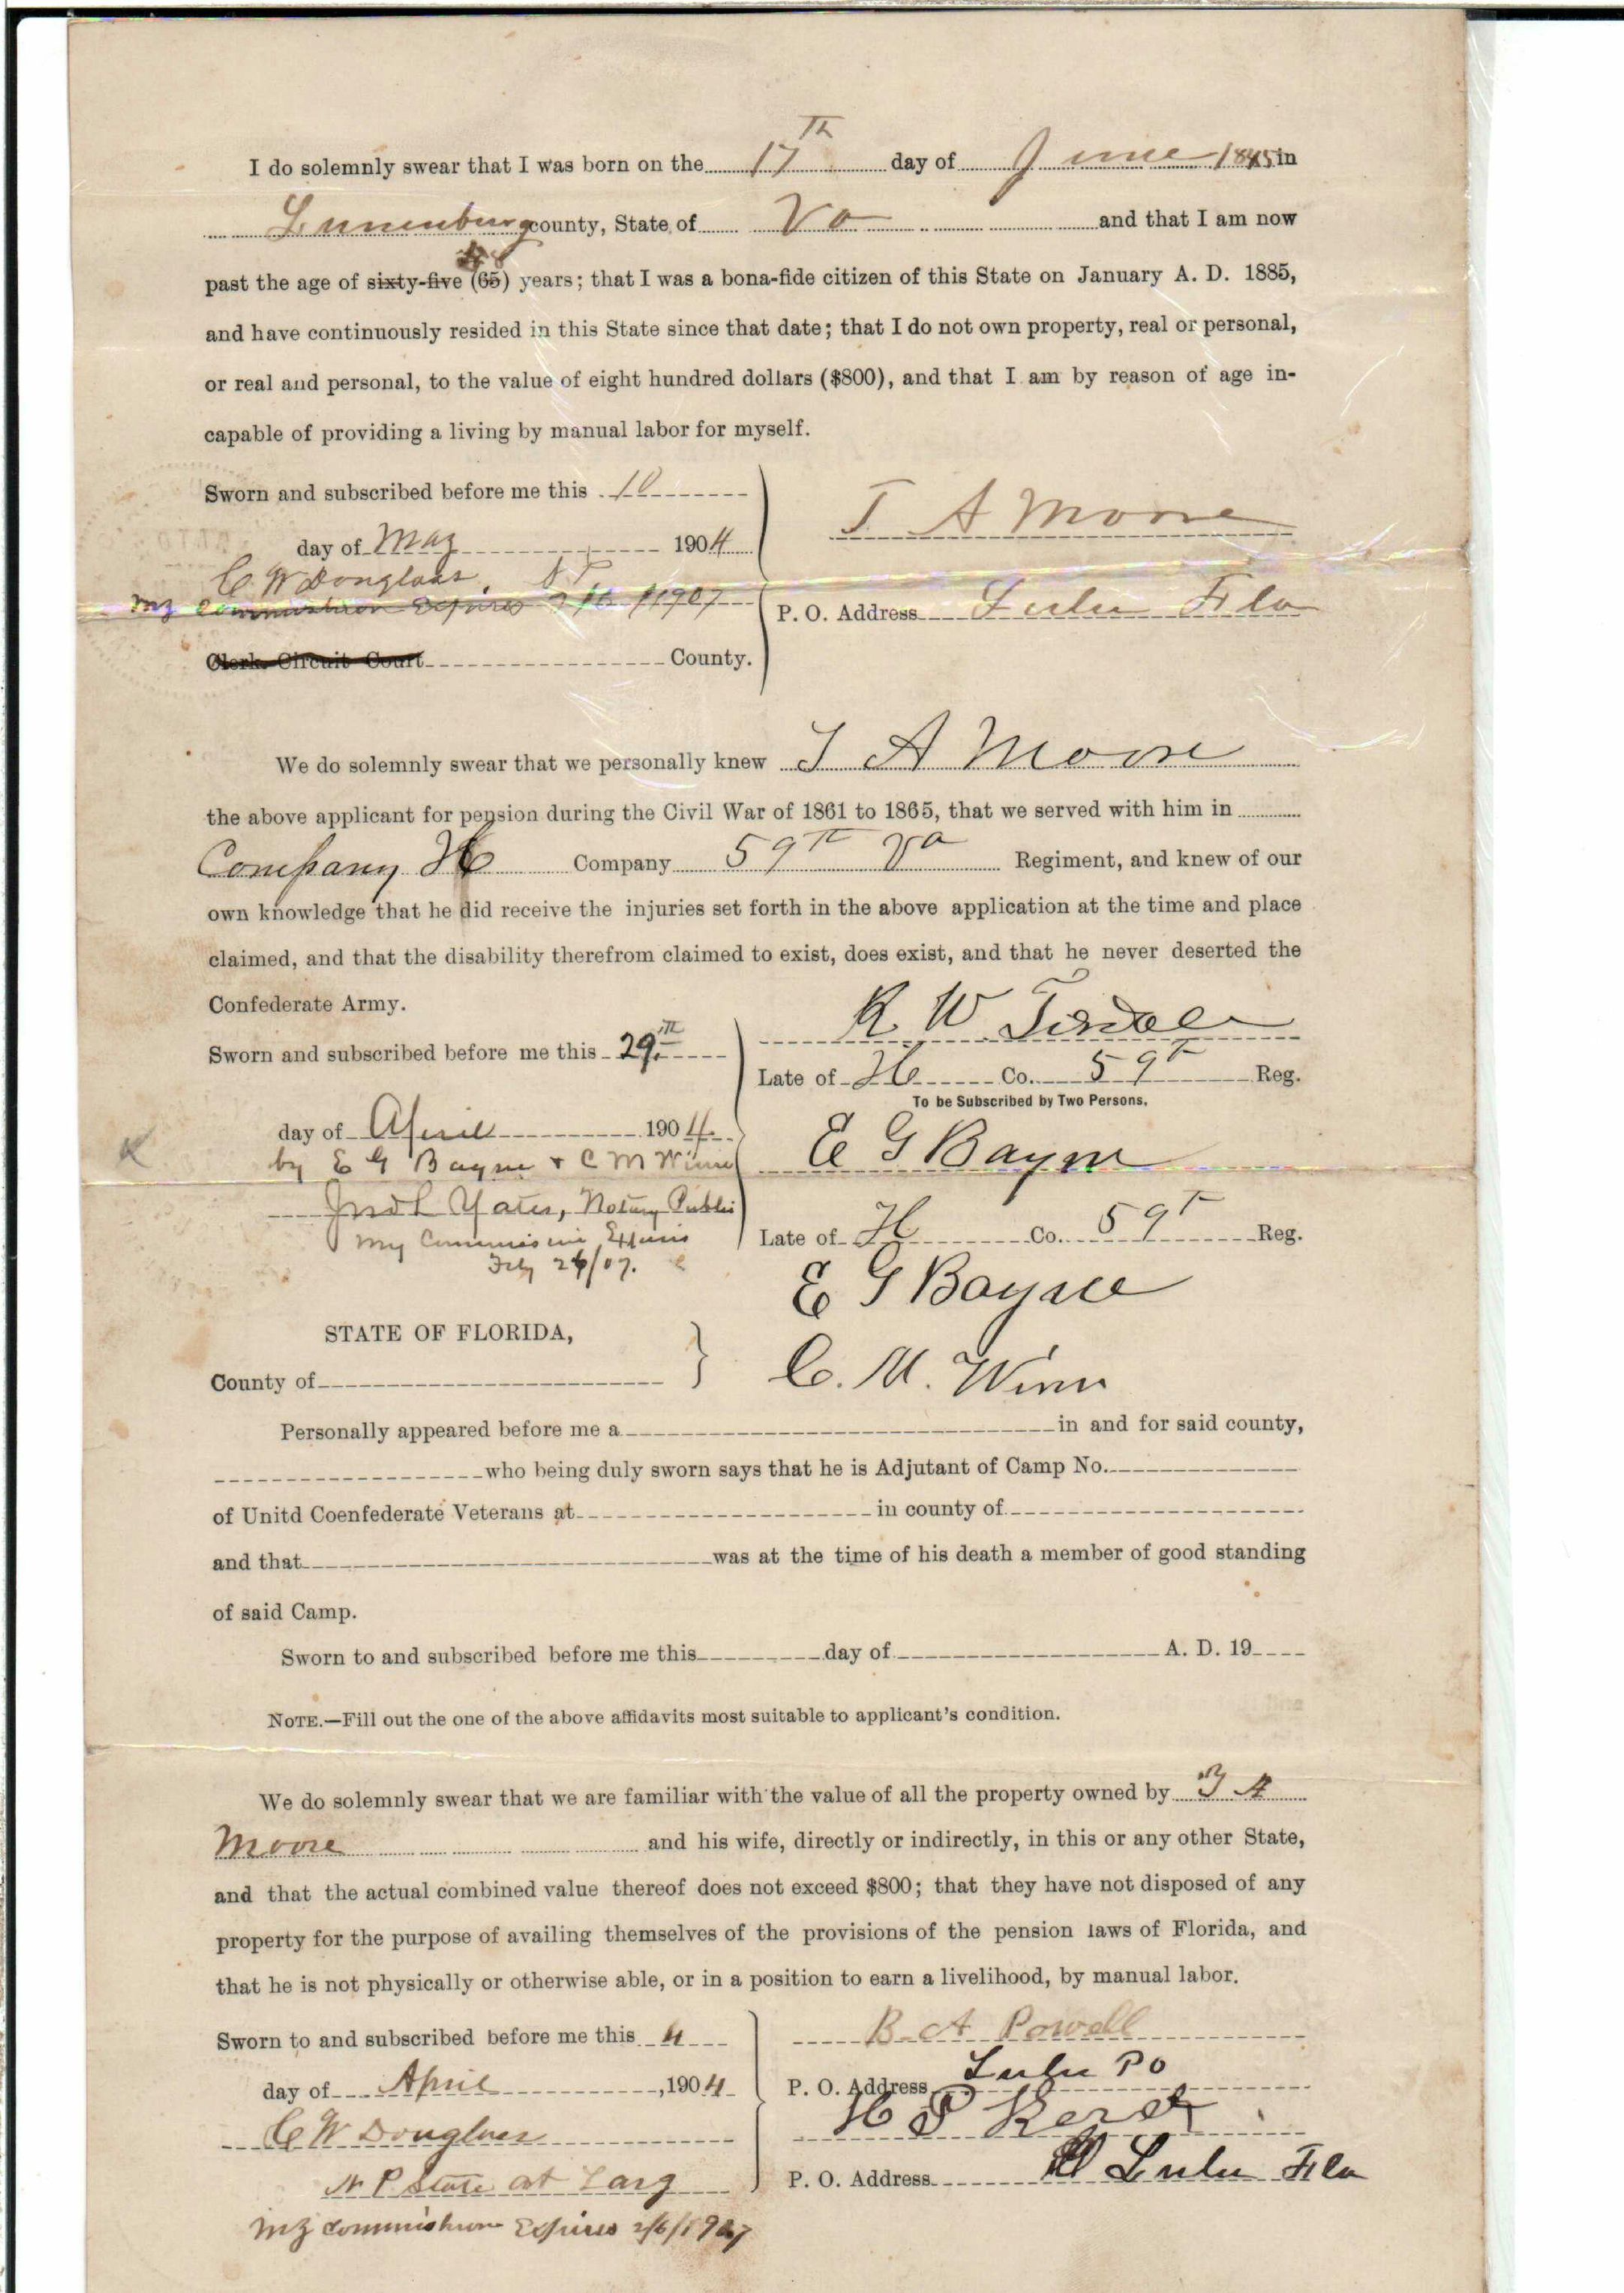 I do solemnly swear that I was born on the 17th day of June 1845 in
Lunenburg county, State of Va and that I am now
past the age of sixty-five (65) years; that I was a bona-fide citizen of this State on January A. D. 1885,
and have continuously resided in this State since that date; that I do not own property, real or personal,
or real and personal, to the value of eight hundred dollars ($800), and that I am by reason of age in-
capable of providing a living by manual labor for myself.
Sworn and subscribed before me this 10
day of May 1904
T A Moore
C. W Douglass
My Commishion Expires 2/6/1907
P. O. Address Lulu Fla
Clerk Circuit Court County.
We do solemnly swear that we personally knew T A Moore
the above applicant for pension during the Civil War of 1861 to 1865, that we served with him in
Company H Company 59th Va Regiment, and knew of our
own knowledge that he did receive the injuries set forth in the above application at the time and place
claimed, and that the disability therefrom claimed to exist, does exist, and that he never deserted the
Confederate Army.
R W
Sworn and subscribed before me this 29th
Late of H Co. 59th Reg.
To be Subscribed by Two Persons.
day of April 1904
by E G Bayne + C M Winn
E G Bayne
Jno L Yates, Notary Public
My Commission Expires
Late of H Co. 59th Reg.
Feby 26/07.
E G Bayne
STATE OF FLORIDA,
County of
C. M. Winn
Personally appeared before me a in and for said county,
who being duly sworn says that he is Adjutant of Camp No.
of Unitd Coenfederate Veterans at in county of
and that was at the time of his death a member of good standing
of said Camp.
Sworn to and subscribed before me this day of A. D. 19
NOTE.—Fill out the one of the above affidavits most suitable to applicant's condition.
We do solemnly swear that we are familiar with the value of all the property owned by T A
Moore and his wife, directly or indirectly, in this or any other State,
and that the actual combined value thereof does not exceed $800; that they have not disposed of any
property for the purpose of availing themselves of the provisions of the pension laws of Florida, and
that he is not physically or otherwise able, or in a position to earn a livelihood, by manual labor.
Sworn to and subscribed before me this 4
B A Powell
day of April, 1904
P. O. Address Lulu PO
C W Douglass
H S
N. P. State at Larg
P. O. Address Lulu Fla
My Commishion Expires 2/6/1907